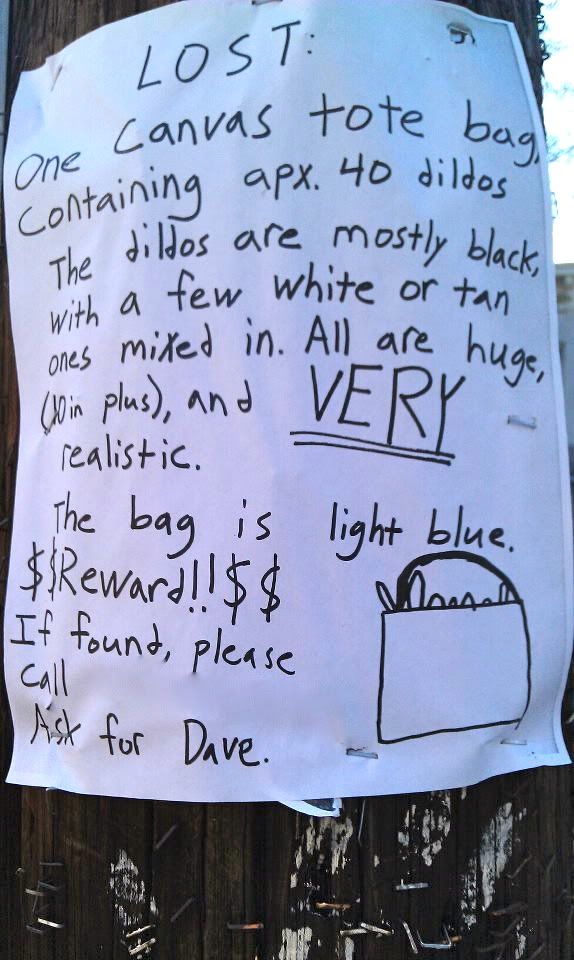 LOST:
One canvas tote bag,
containing apx. 40 dildos
The dildos are mostly black,
with a few white or tan
ones mixed in. All are huge,
(10in plus), and VERY
realistic.
The bag is light blue.
$$Reward!!$$
If found, please
call
Ask for Dave.